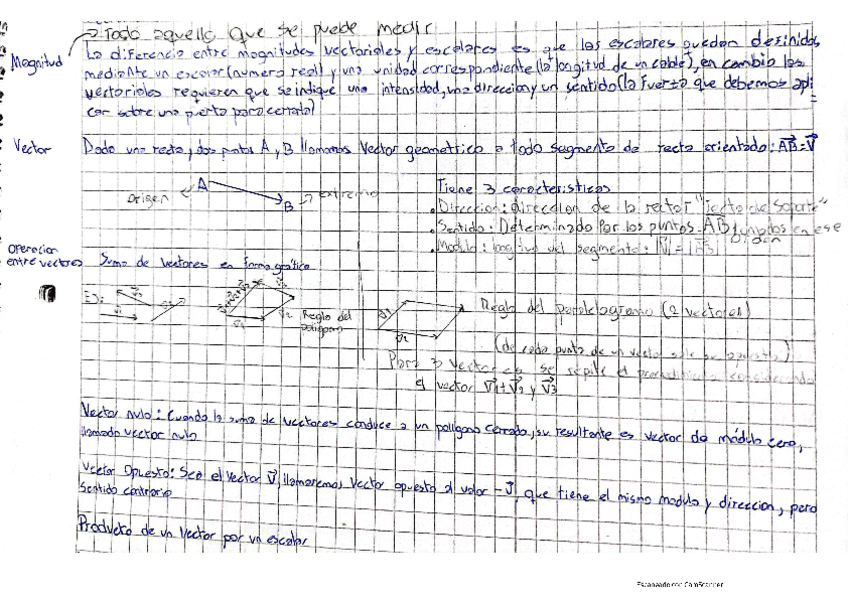 → Todo aquello que se puede medir
Magnitud
La diferencia entre magnitudes vectoriales y escalares es que las escalares quedan definidas
mediante un escalar (numero real) y una unidad correspondiente (la longitud de un cable), en cambio las
vectoriales requieren que se indique una intensidad, una direccion y un sentido (la fuerza que debemos apli
car sobre una puerta para cerrarla)
Vector
Dado una recta, dos puntos A, B llamamos Vector geometrico a todo segmento de recta orientado: AB=V
Origen A B → extremo
Tiene 3 caracteristicas
• Direccion: direccion de la recta "recta de soporte"
• Sentido: Determinado por los puntos AB en ese
orden
• Modulo: longitud del segmento: |V| = |AB|
Operacion
entre vectores
Suma de vectores en forma gráfica
Ej:
Regla del
poligono
Regla del paralelogramo (2 vectores)
(de cada punta de un vector sale su opuesto)
Para 3 vectores se repite el
el vector V1+V2 y V3
Vector nulo: Cuando la suma de vectores conduce a un poligono cerrado, su resultante es vector de módulo cero,
llamado vector nulo
Vector Opuesto: Sea el vector V, llamaremos vector opuesto al valor -V, que tiene el mismo modulo y direccion, pero
sentido contrario
Producto de un Vector por un escalar
Escaneado con CamScanner